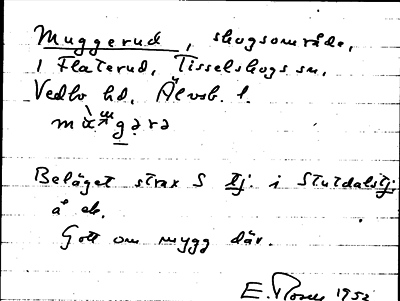 Muggerud, skogsområde,
i Flaterud, Tisselskogs sn,
Vedbo hd, Älvsb. l.
Beläget strax S tj. i Stutdalstj.
å ek.
Gott om mygg där.
E. 1952